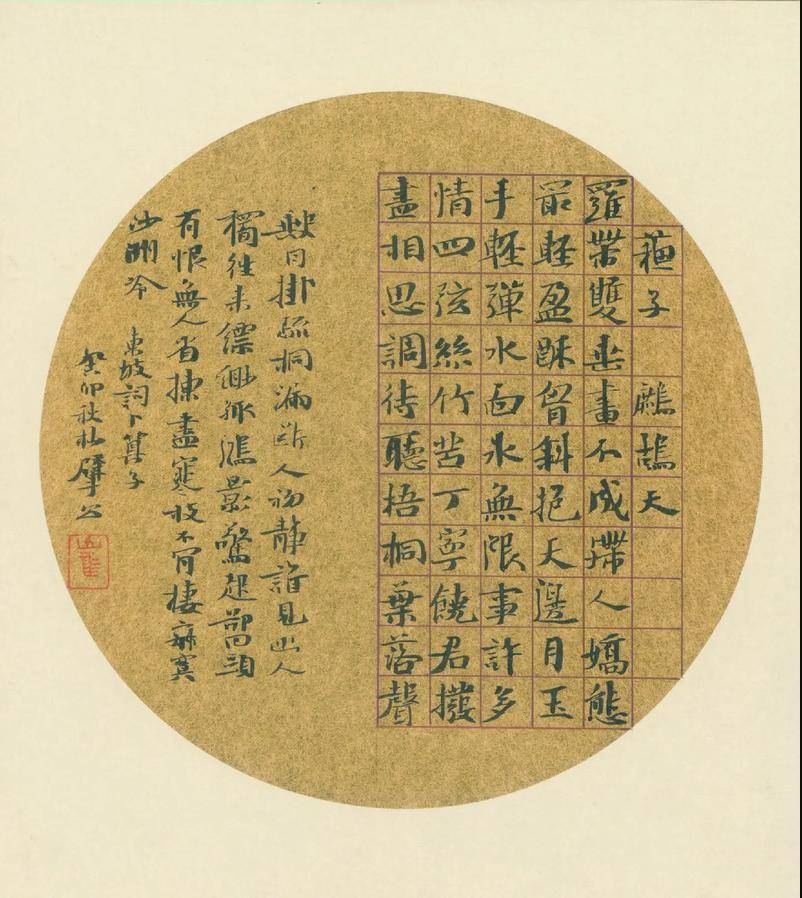 蘓子 鷓鴣天
羅帶雙垂畫不成殢人嬌態
最軽盈酥胷斜抱天邊月玉
手軽彈水面氷無限事許多
情四弦絲竹苦丁寧饒君撥
盡相思調待聽梧桐葉落聲
缺月掛疏桐漏斷人初静誰見幽人
獨往來縹緲孤鴻影驚起卻回頭
有恨無人省揀盡寒枝不肯棲寂寞
沙洲冷 東坡詞卜算子
癸卯秋 擘公